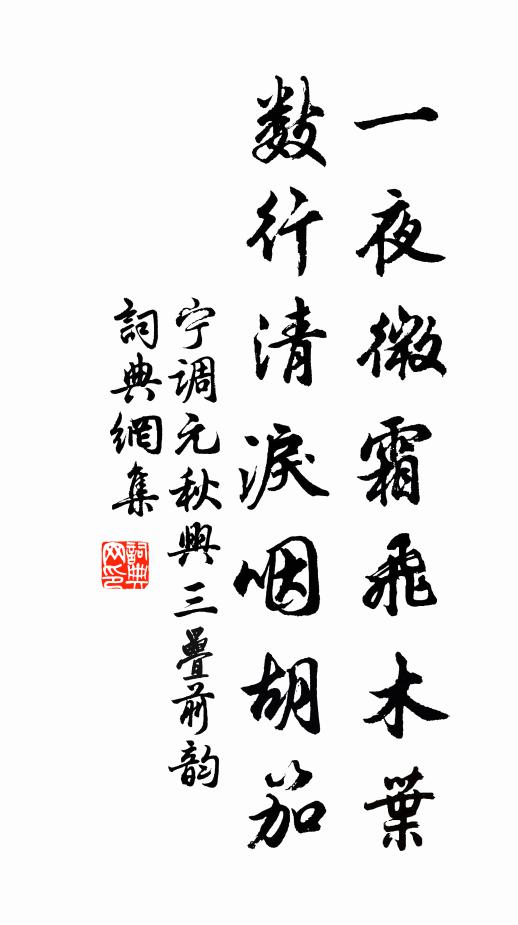 一夜微霜飛木葉
數行清淚咽胡笳
宁调元秋興三疊前韵
詞典網集
詞典网印